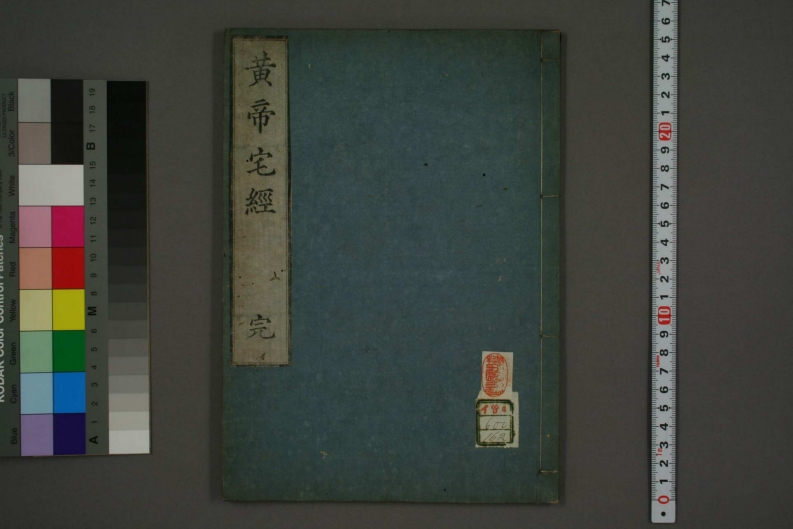 黄帝宅經 完
194
KODAK Color Control Patches
Blue Cyan Green Yellow Red Magenta White 3/Color Black
A 1 2 3 4 5 6 M 8 9 10 11 12 13 14 15 B 17 18 19
0 1 2 3 4 5 6 7 8 9 10 1 2 3 4 5 6 7 8 9 20 1 2 3 4 5 6 7